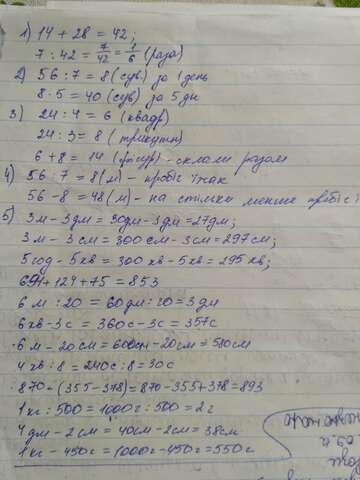 1) 14 + 28 = 42;
7 : 42 = 7/42 = 1/6 (раза)
2) 56 : 7 = 8 (сув) за 1 день
8 · 5 = 40 (сув) за 5 дн
3) 24 : 4 = 6 (квадр)
24 : 3 = 8 (трикутн)
6 + 8 = 14 (фігур) - склали разом
4) 56 : 7 = 8 (м) - пробіг їжак
56 - 8 = 48 (м) - на стільки менше пробіг ї
5) 3м - 3дм = 30дм - 3дм = 27дм;
3м - 3см = 300см - 3см = 297см;
5год - 5хв = 300хв - 5хв = 295хв;
+ 124 + 75 = 853
6м : 20 = 60дм : 20 = 3дм
6хв - 3с = 360с - 3с = 357с
6м - 20см = 600см - 20см = 580см
4хв : 8 = 240с : 8 = 30с
870 - (355 - 378) = 870 - 355 + 378 = 893
1кг : 500 = 1000г : 500 = 2г
4дм - 2см = 40см - 2см = 38см
1кг - 450г = 1000г - 450г = 550г